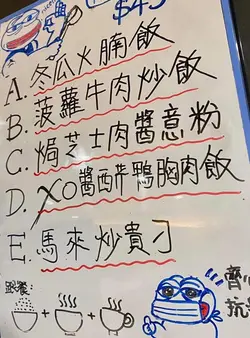 $45
A. 冬瓜火腩飯
B. 菠蘿牛肉炒飯
C. 焗芝士肉醬意粉
D. XO醬西芹鴨胸肉飯
E. 馬來炒貴刁
跟餐:
+ +
齊心
抗